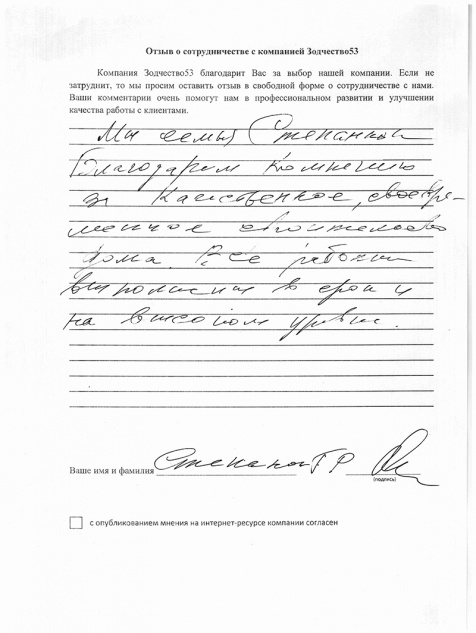 Отзыв о сотрудничестве с компанией Зодчество53
Компания Зодчество53 благодарит Вас за выбор нашей компании. Если не
затруднит, то мы просим оставить отзыв в свободной форме о сотрудничестве с нами.
Ваши комментарии очень помогут нам в профессиональном развитии и улучшении
качества работы с клиентами.
Мы семья
Благодарим компанию
за качественное, своевре-
менное строительство
дома. Все работы
выполнены в срок и
на высоком уровне.
Ваше имя и фамилия
(подпись)
с опубликованием мнения на интернет-ресурсе компании согласен